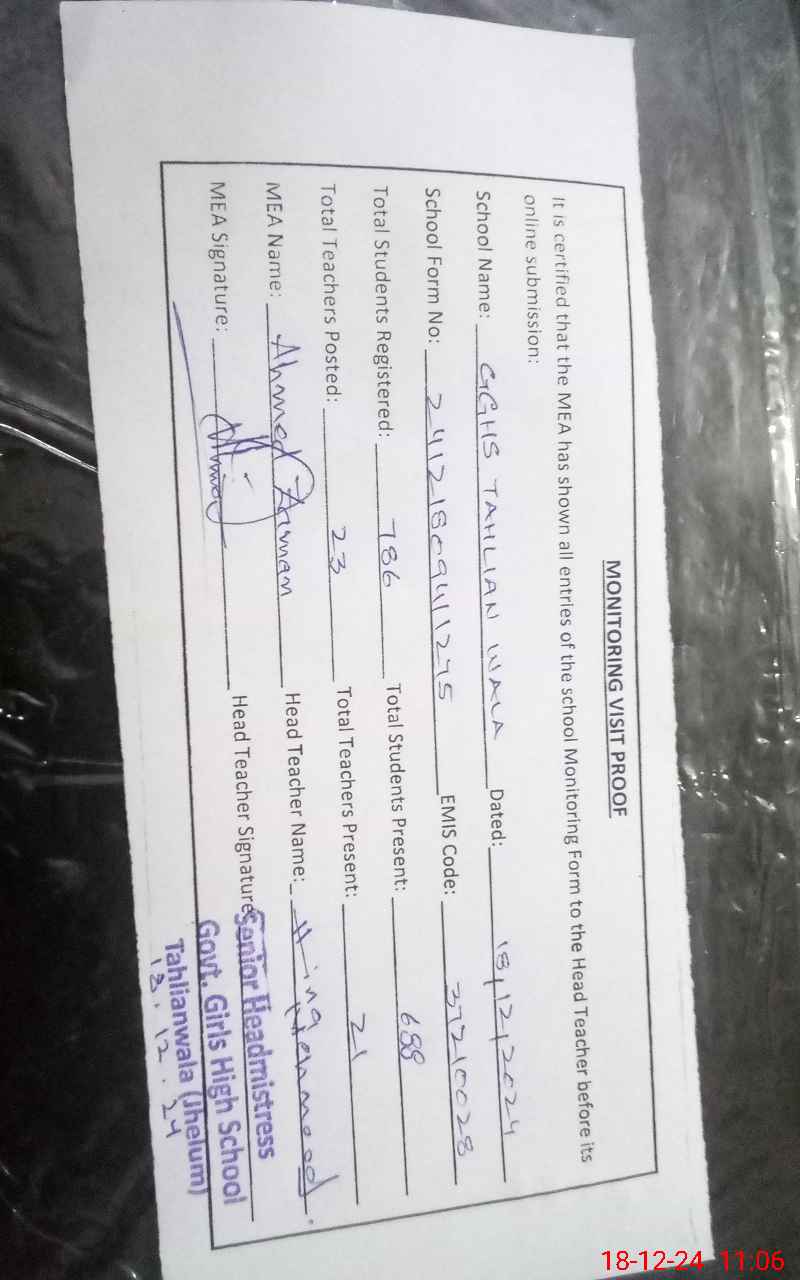 MONITORING VISIT PROOF
It is certified that the MEA has shown all entries of the school Monitoring Form to the Head Teacher before its
online submission:
School Name: GGHS TAHLIAN WALA Dated: 18/12/2024
School Form No: 24121809411275 EMIS Code: 37210028
Total Students Registered: 786 Total Students Present: 688
Total Teachers Posted: 23 Total Teachers Present: 21
MEA Name: Ahmed Zaman Head Teacher Name: Hina Mehmood.
MEA Signature: Head Teacher Signature
Senior Headmistress
Govt. Girls High School
Tahlianwala (Jhelum)
18.12.24
18-12-24 11:06